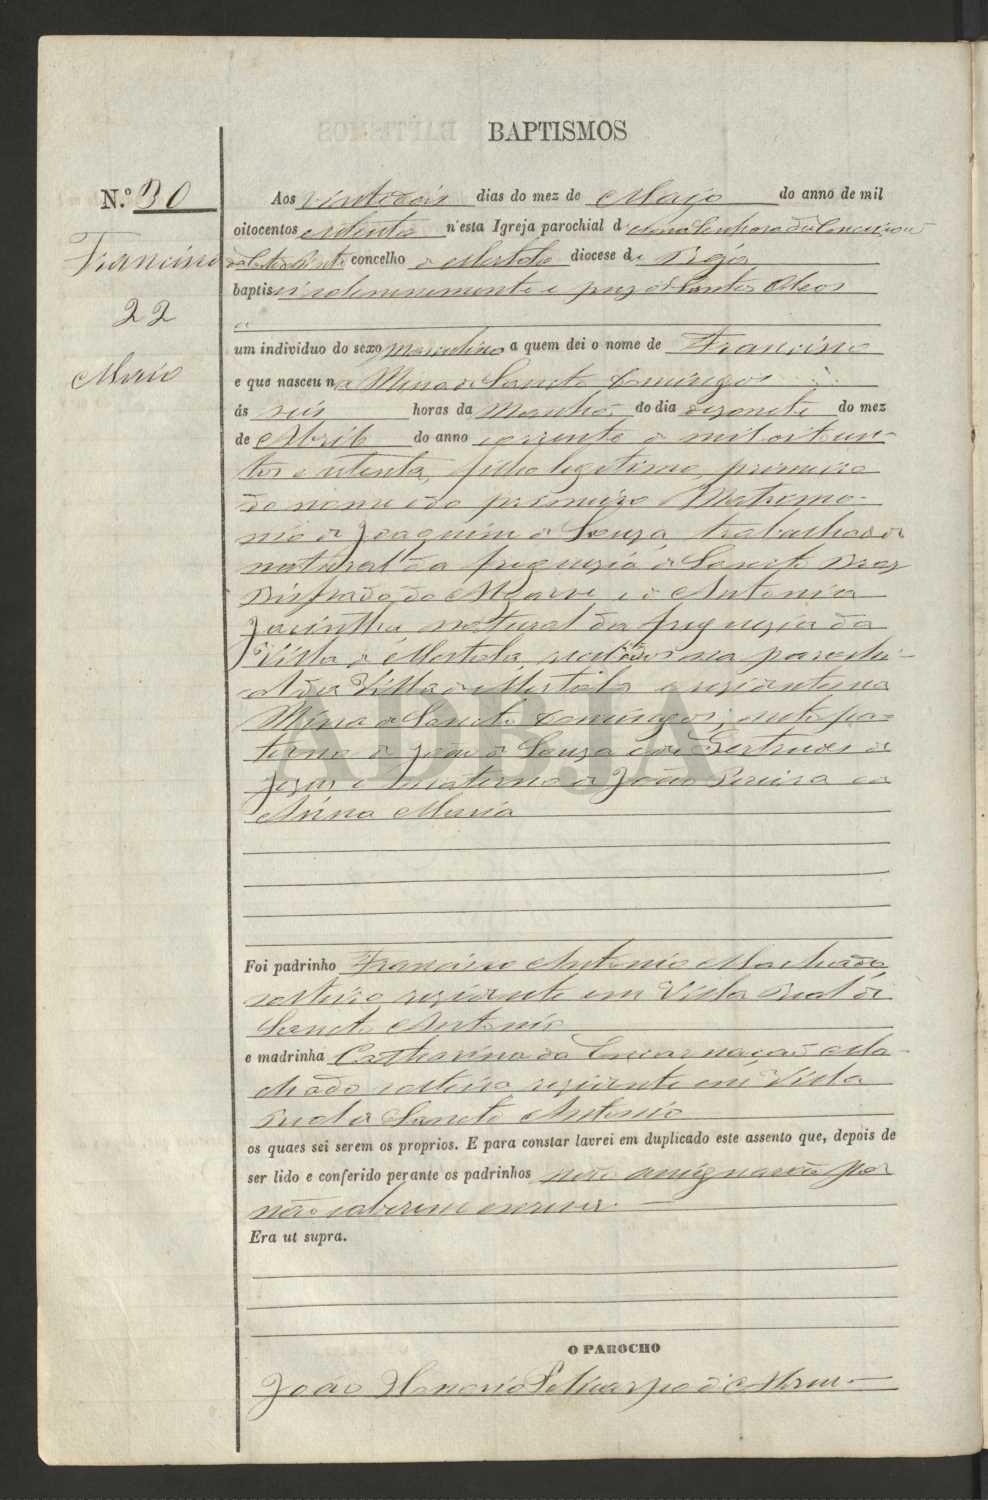 BAPTISMOS
N.º 30
Francisco
22
Maio
Aos vinte dois dias do mez de Maio do anno de mil
oitocentos oitenta n'esta Igreja parochial d' Nossa Senhora da Conceição
concelho de Mertola diocese de Beja
baptisei solemnemente e puz os Santos Oleos
um individuo do sexo Masculino a quem dei o nome de Francisco
e que nasceu na Mina de Sancto Domingos
ás seis horas da Manhã do dia desanete do mez
de Abril do anno corrente de mil oitocen-
tos e oitenta, filho legitimo, primeiro
do nome e do primeiro Matrimo-
nio de Joaquim de Souza, trabalhador
natural da freguezia de Sancto Braz
Bispado do Algarve e de Antonia
Jacintha natural da freguezia da
Villa de Mertola, recebidos na parochi-
al da Villa de Mertola e rezidentes na
Mina de Sancto Domingos; neto pa-
terno de João de Souza e de Gertrudes de
Jezus e materno de João Pereira e de
Anna Maria
Foi padrinho Francisco Antonio Machado
solteiro, rezidente em Villa Real de
Sancto Antonio
e madrinha Catherina da Encarnação Ma-
chado solteira rezidente em Villa
Real de Sancto Antonio
os quaes sei serem os proprios. E para constar lavrei em duplicado este assento que, depois de
ser lido e conferido perante os padrinhos não assignarão por
não saberem escrever.
Era ut supra.
O PAROCHO
João Honorio Policarpo d'Abreu
ADBJA